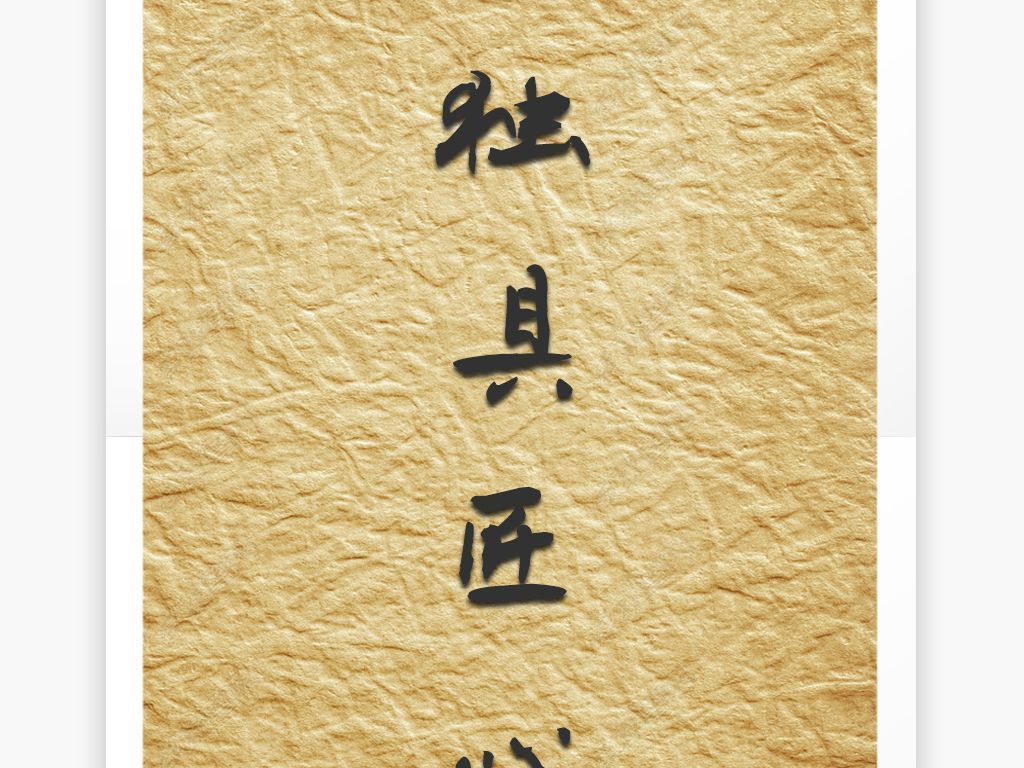 独具匠